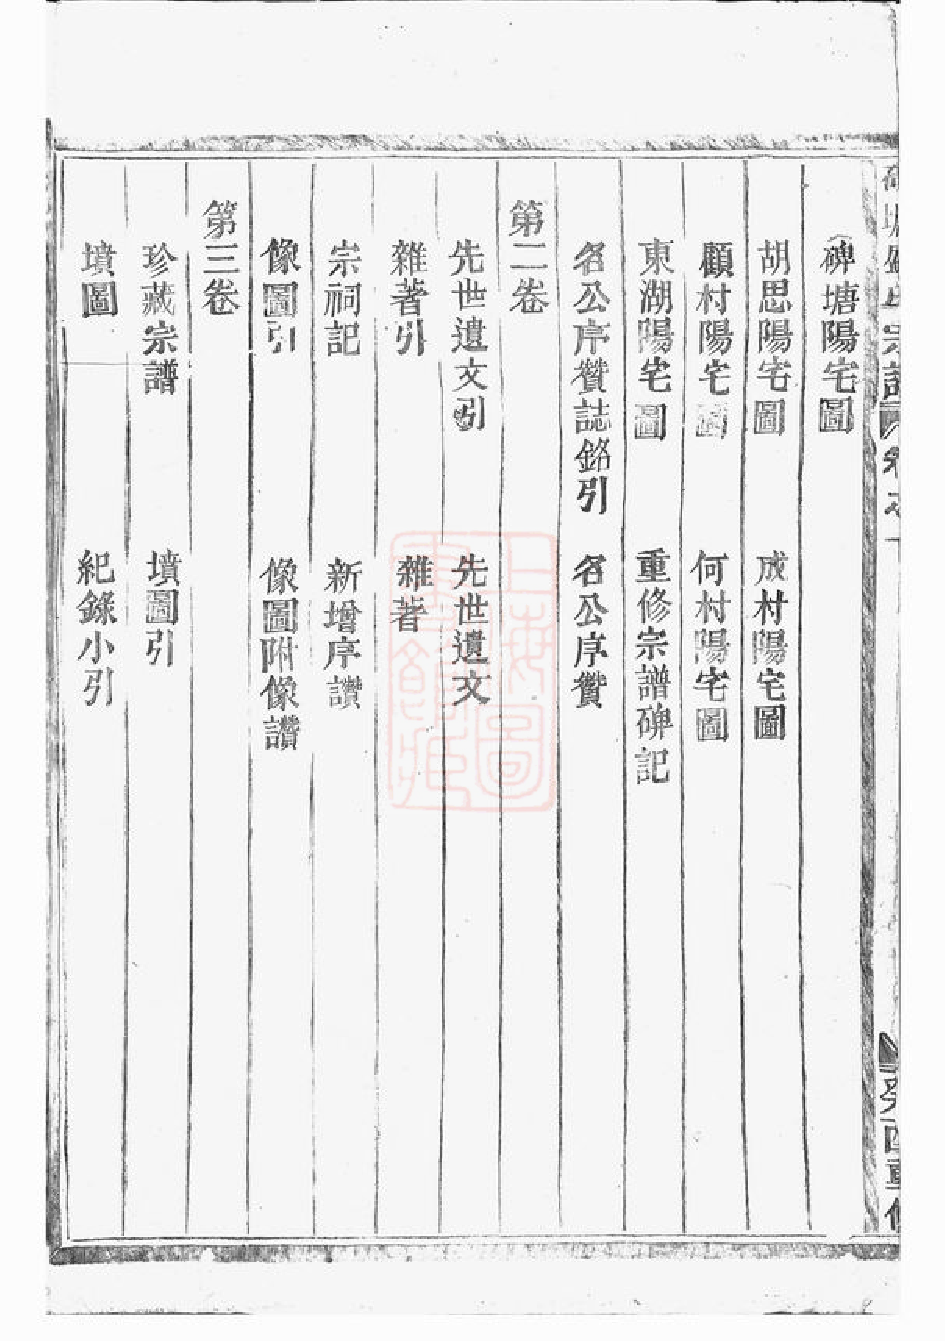 碑塘陽宅圖
胡思陽宅圖　成村陽宅圖
顧村陽宅圖　何村陽宅圖
東湖陽宅圖　重修宗譜碑記
名公序贊誌銘引　名公序贊
第二卷
先世遺文引　先世遺文
雜著引　雜著
宗祠記　新增序讚
像圖引　像圖附像讚
第三卷
珍藏宗譜　墳圖引
墳圖　紀錄小引
宗譜
癸酉重修